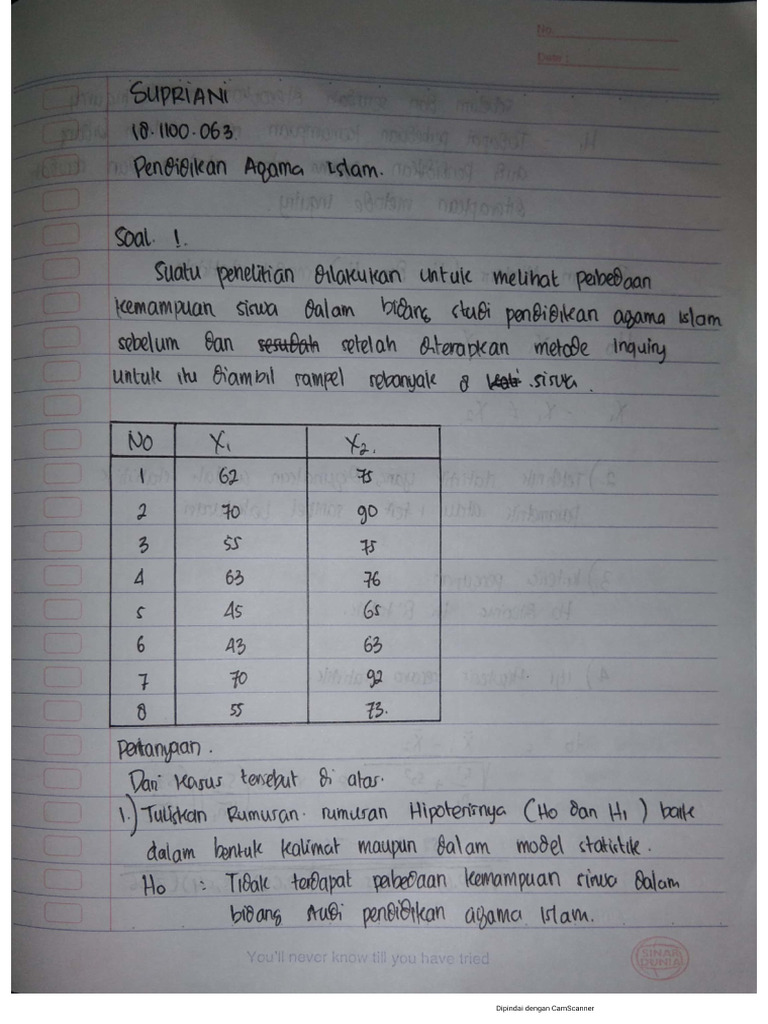 No.
Date :
SUPRIANI
18.1100.063
Pendidikan Agama Islam.
Soal. 1.
Suatu penelitian dilakukan untuk melihat perbedaan
kemampuan siswa dalam bidang studi pendidikan agama Islam
sebelum dan sesudah setelah diterapkan metode Inquiry
untuk itu diambil sampel sebanyak 8 siswa.
No X1 X2.
1 62 75
2 70 90
3 55 75
4 63 76
5 45 65
6 43 63
7 70 92
8 55 73.
Pertanyaan.
Dari kasus tersebut di atas.
1.) Tuliskan Rumusan-rumusan Hipotesisnya (Ho dan H1) baik
dalam bentuk kalimat maupun dalam model statistik.
Ho : Tidak terdapat perbedaan kemampuan siswa dalam
bidang studi pendidikan agama Islam.
You'll never know till you have tried
SINAR DUNIA
Dipindai dengan CamScanner